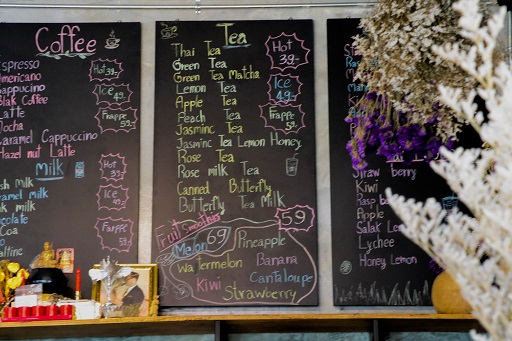 Coffee
Espresso
Americano
Cappucino
Blak Coffee
Latte
Mocha
Caramel Cappuccino
Hazel nut Latte
Hot 39.-
Ice 49.-
Frappe 59.-
Milk
sh Milk
ramel milk
nk milk
ocolate
Cocoa
altine
Hot 39.-
Ice 49.-
Frappe 59.-
Tea
Thai Tea
Green Tea
Green Tea Matcha
Lemon Tea
Apple Tea
Peach Tea
Jasminc Tea
Jasminc Tea Lemon Honey
Rose Tea
Rose milk Tea
Canned Butterfly
Butterfly Tea Milk
Hot 39.-
Ice 49.-
Frappe 59.-
Fruit Smoothies
59
Melon 69
Pineapple
Watermelon
Banana
Kiwi
Cantaloupe
Strawberry
Straw berry
Kiwi
Apple
Lychee
Honey Lemon